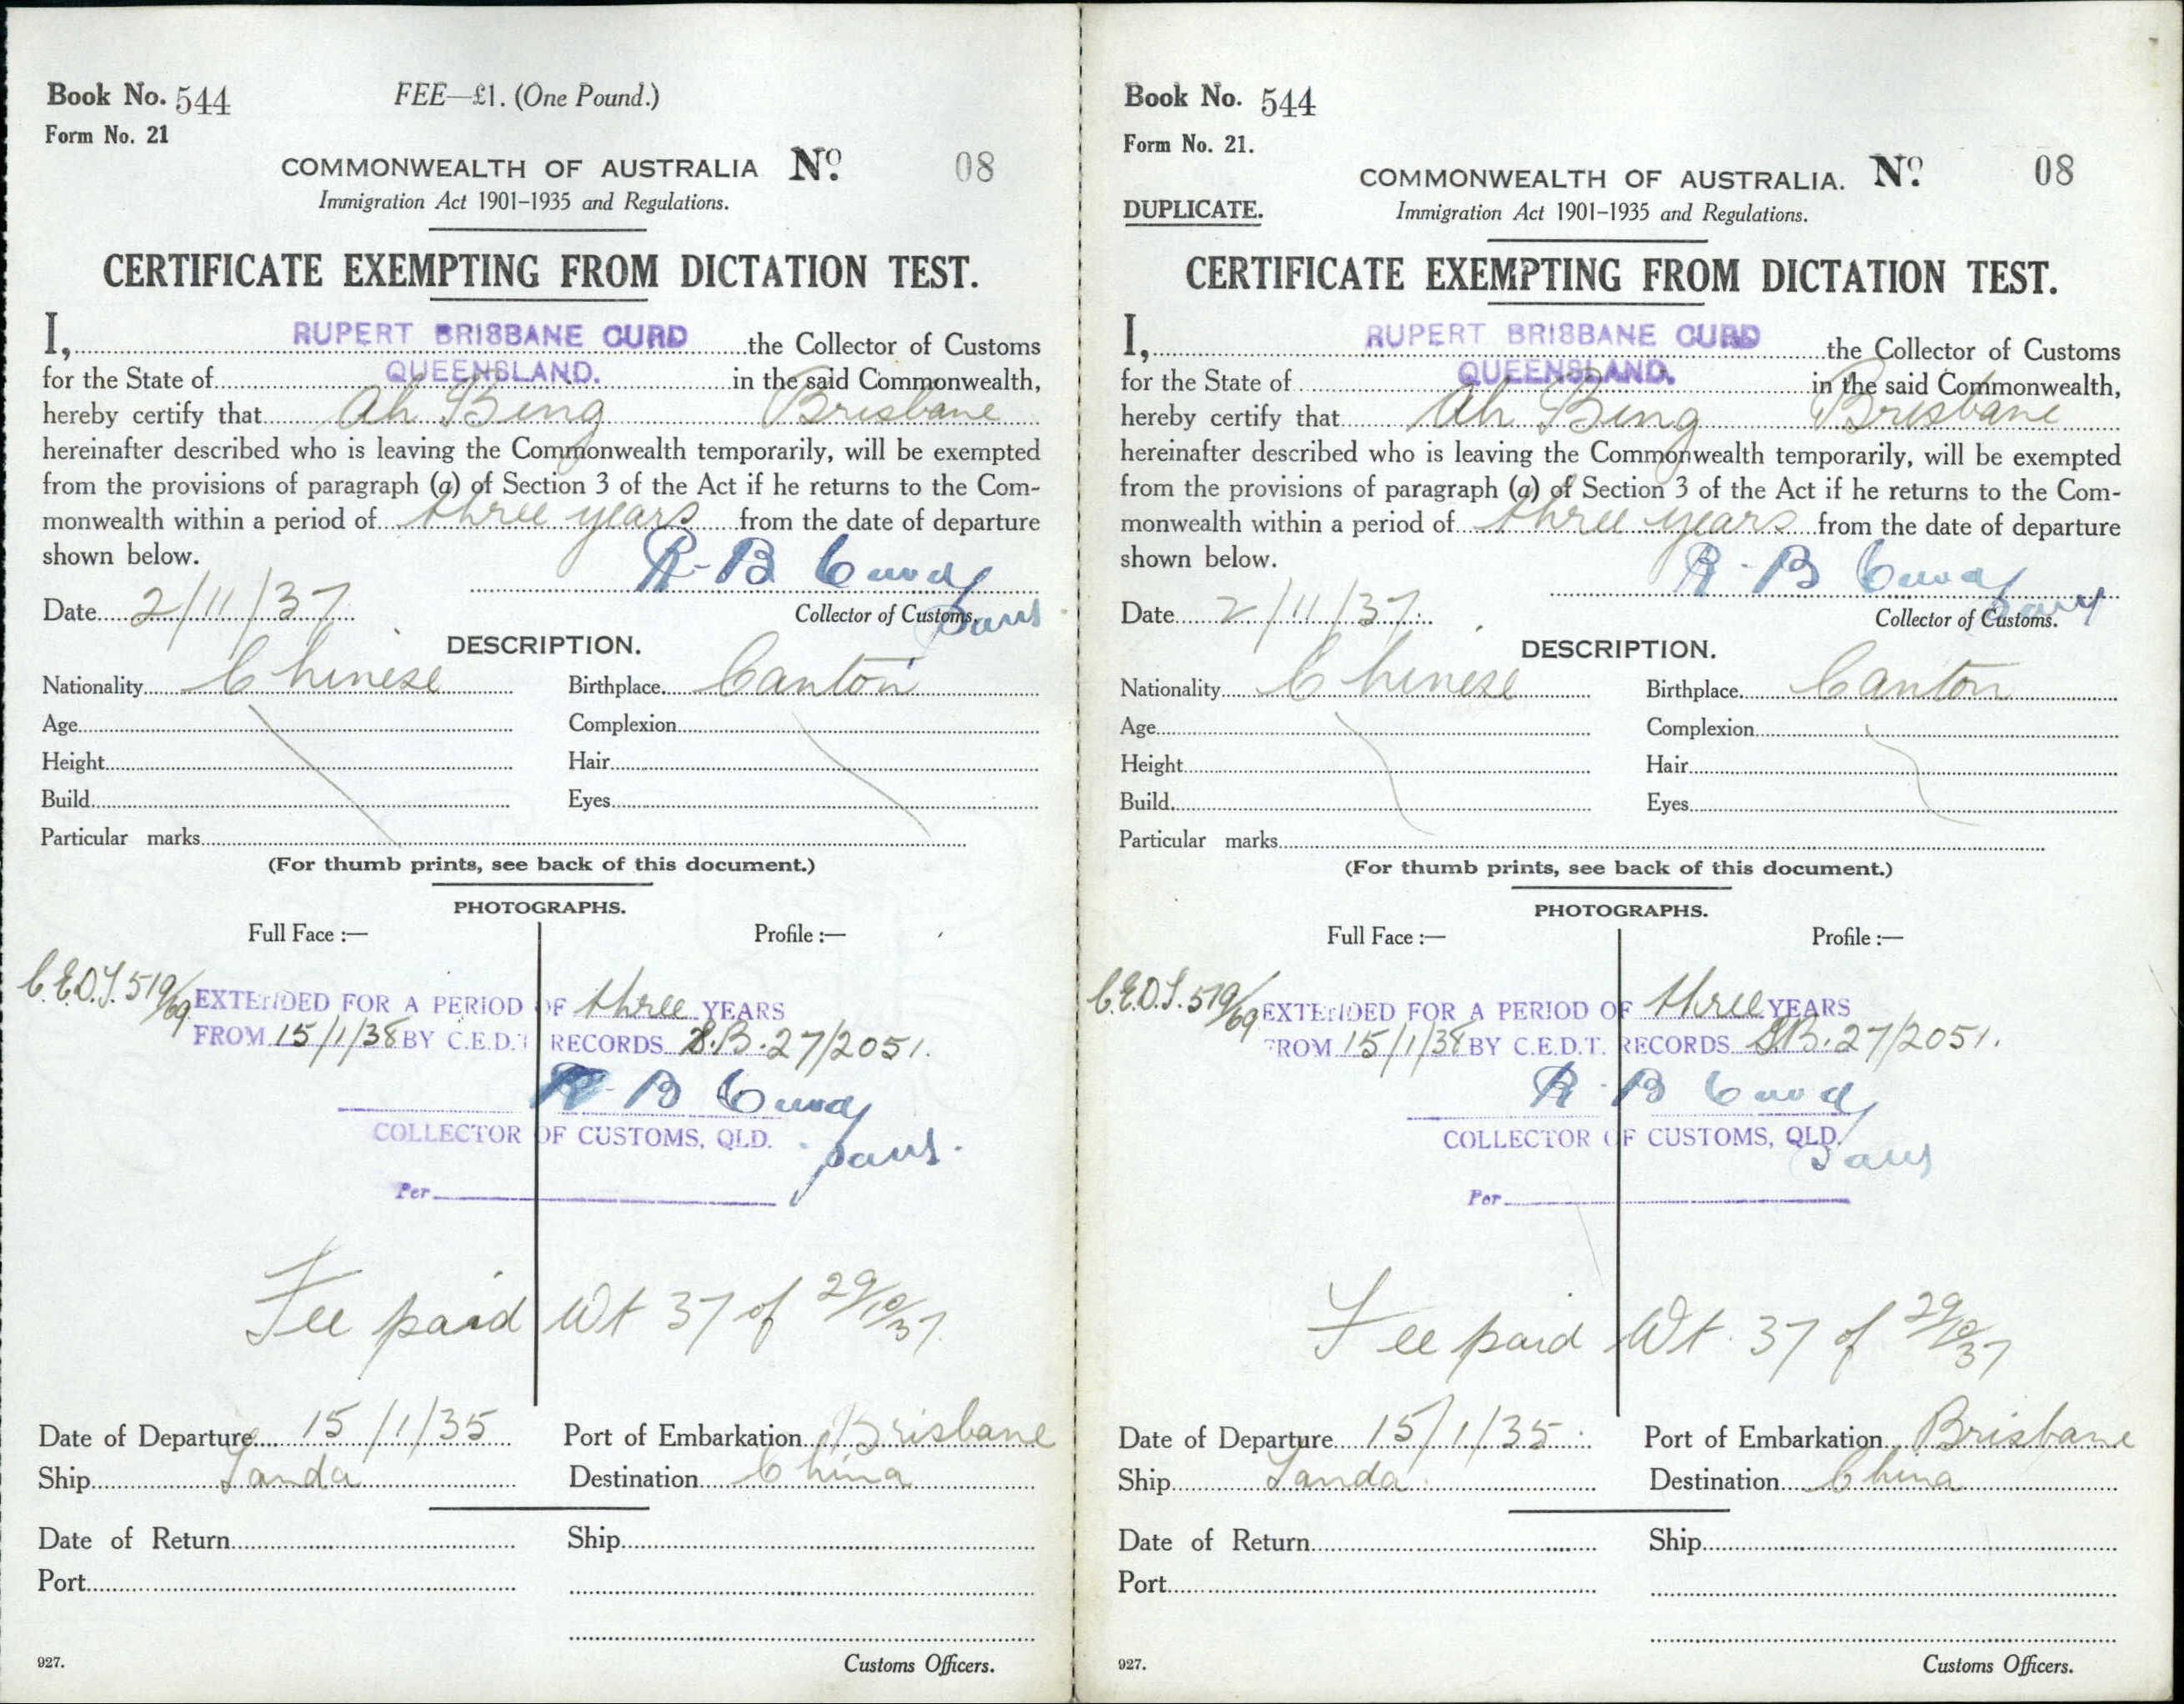 Book No. 544
FEE—£1. (One Pound.)
Form No. 21
COMMONWEALTH OF AUSTRALIA No. 08
Immigration Act 1901–1935 and Regulations.
CERTIFICATE EXEMPTING FROM DICTATION TEST.
I, RUPERT BRISBANE CURD the Collector of Customs
for the State of QUEENSLAND. in the said Commonwealth,
hereby certify that Ah Bing Brisbane
hereinafter described who is leaving the Commonwealth temporarily, will be exempted
from the provisions of paragraph (a) of Section 3 of the Act if he returns to the Com-
monwealth within a period of three years from the date of departure
shown below.
R-B Curd
Date 2/11/37
Collector of Customs.
DESCRIPTION.
Nationality Chinese Birthplace Canton
Age Complexion
Height Hair
Build Eyes
Particular marks
(For thumb prints, see back of this document.)
PHOTOGRAPHS.
Full Face :— Profile :—
C.E.D.T. 519/69
EXTENDED FOR A PERIOD OF three YEARS
FROM 15/1/38 BY C.E.D.T. RECORDS 27/2051.
R-B Curd
COLLECTOR OF CUSTOMS, QLD.
Per
Fee paid Wt 37 of 29/10/37
Date of Departure 15/1/35 Port of Embarkation Brisbane
Ship Tanda Destination China
Date of Return Ship
Port
927. Customs Officers.
Book No. 544
Form No. 21.
COMMONWEALTH OF AUSTRALIA. No. 08
DUPLICATE.
Immigration Act 1901–1935 and Regulations.
CERTIFICATE EXEMPTING FROM DICTATION TEST.
I, RUPERT BRISBANE CURD the Collector of Customs
for the State of QUEENSLAND. in the said Commonwealth,
hereby certify that Ah Bing Brisbane
hereinafter described who is leaving the Commonwealth temporarily, will be exempted
from the provisions of paragraph (a) of Section 3 of the Act if he returns to the Com-
monwealth within a period of three years from the date of departure
shown below.
R-B Curd
Date 2/11/37.
Collector of Customs.
DESCRIPTION.
Nationality Chinese Birthplace Canton
Age Complexion
Height Hair
Build Eyes
Particular marks
(For thumb prints, see back of this document.)
PHOTOGRAPHS.
Full Face :— Profile :—
C.E.D.T. 519/69
EXTENDED FOR A PERIOD OF three YEARS
FROM 15/1/38 BY C.E.D.T. RECORDS 27/2051.
R-B Curd
COLLECTOR OF CUSTOMS, QLD.
Per
Fee paid Wt. 37 of 29/10/37
Date of Departure 15/1/35 Port of Embarkation Brisbane
Ship Tanda Destination China
Date of Return Ship
Port
927. Customs Officers.